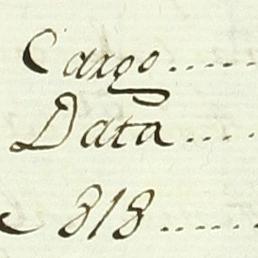 Cargo.....
Data....
818......